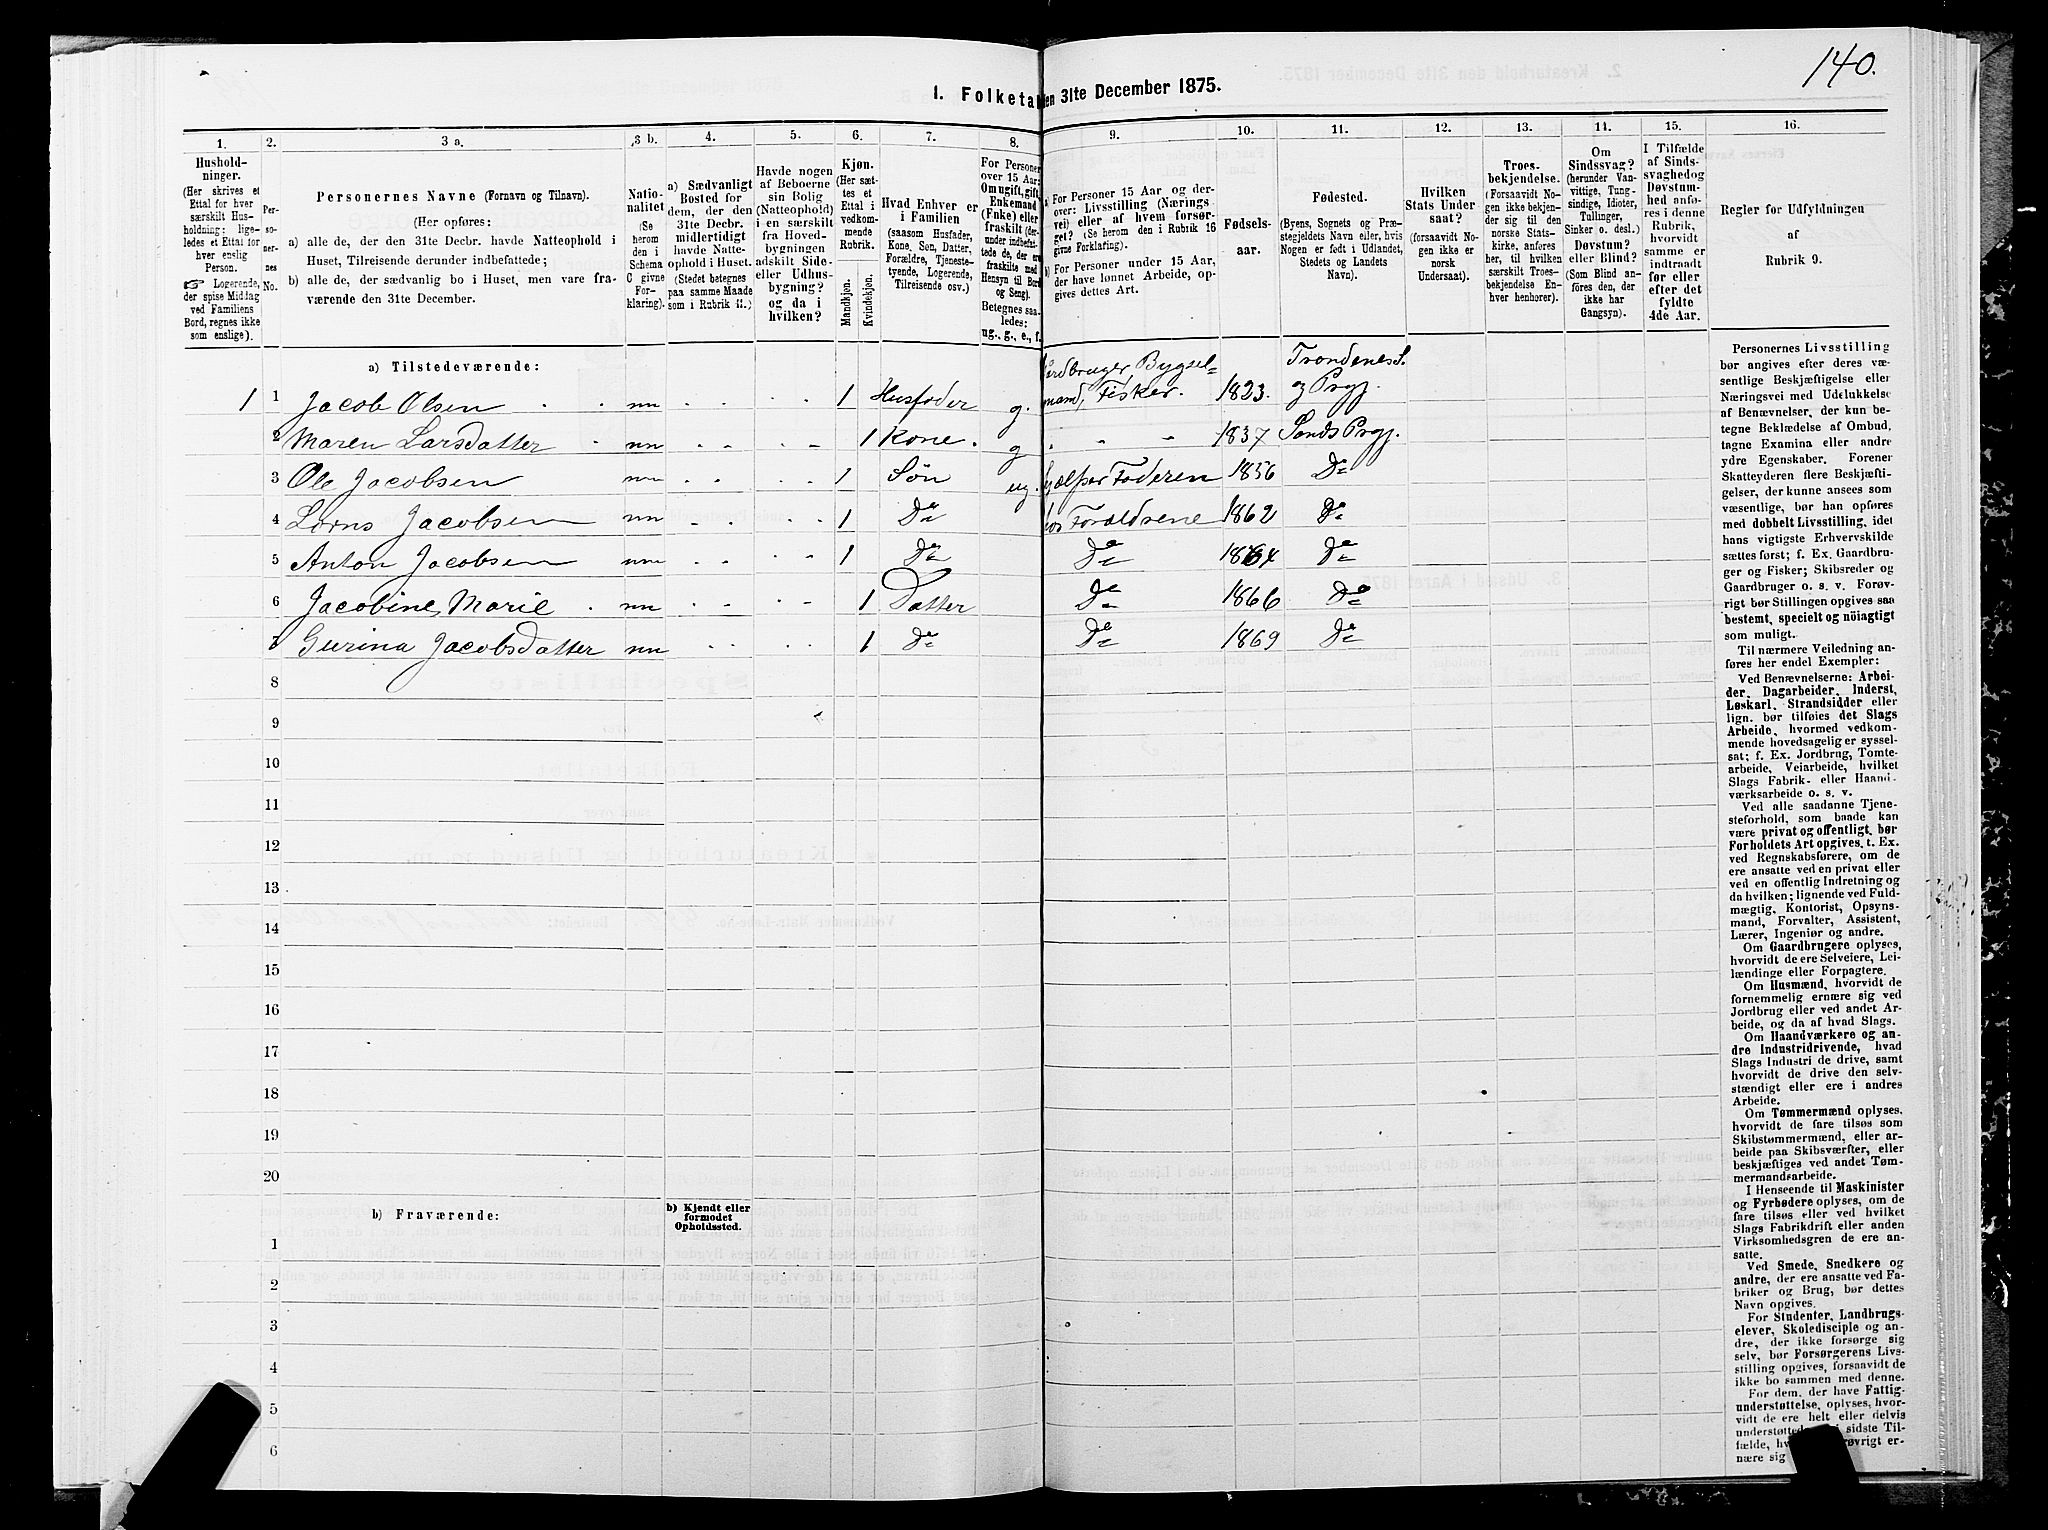 140.
I. Folketa den 31te December 1875.
1. 2. 3 a. 3 b. 4. 5. 6. 7. 8. 9. 10. 11. 12. 13. 14. 15. 16.
Hushold-
ninger.
(Her skrives et
Ettal for hver
særskilt Hus-
holdning: lige-
ledes et Ettal for
hver enslig
Person.
☞ Logerende,
der spise Middag
ved Familiens
Bord, regnes ikke
som enslige).
Per-
so-
ner-
nes
No.
Personernes Navne (Fornavn og Tilnavn).
(Her opføres:
a) alle de, der den 31te Decbr. havde Natteophold i
Huset, Tilreisende derunder indbefattede;
b) alle de, der sædvanlig bo i Huset, men vare fra-
værende den 31te December.
Natio-
nalitet
(Se
herom
den i
Schema
C givne
For-
klaring).
a) Sædvanligt
Bosted for
dem, der den
31te Decbr.
midlertidigt
havde Natte-
ophold i Huset.
(Stedet betegnes
paa samme Maade
som i Rubrik 11.)
Havde nogen
af Beboerne
sin Bolig
(Natteophold)
i en særskilt
fra Hoved-
bygningen
adskilt Side-
eller Udhus-
bygning?
og da i
hvilken?
Kjøn.
(Her sæt-
tes et
Ettal i
vedkom-
mende
Rubrik.
Mandkjøn.
Kvindekjøn.
Hvad Enhver er
i Familien
(saasom Husfader,
Kone, Søn, Datter,
Forældre, Tjeneste-
tyende, Logerende,
Tilreisende osv.)
For Personer
over 15 Aar:
Om ugift, gift,
Enkemand
(Enke) eller
fraskilt (der-
under indbefat-
tede de, der ere
fraskilte med
Hensyn til Bord
og Seng).
Betegnes saa-
ledes:
ug., g., e., f.
a) For Personer 15 Aar og der-
over: Livsstilling (Nærings
vei) eller af hvem forsør-
get? (Se herom den i Rubrik 16
givne Forklaring).
b) For Personer under 15 Aar,
der have lønnet Arbeide, op-
gives dettes Art.
Fødsels-
aar.
Fødested.
(Byens, Sognets og Præ-
stegjeldets Navn eller, hvis
Nogen er født i Udlandet,
Stedets og Landets
Navn).
Hvilken
Stats Under
saat?
(forsaavidt No-
gen ikke er
norsk
Undersaat).
Troes-
bekjendelse.
(Forsaavidt No-
gen ikke bekjen-
der sig til den
norske Stats-
kirke, anføres
her, til hvilken
særskilt Troes-
bekjendelse En-
hver henhører).
Om
Sindssvag?
(herunder Van-
vittige, Tung-
sindige, Idioter,
Tullinger,
Sinker o. desl.)
Døvstum?
eller Blind?
(Som Blind an-
føres den, der
ikke har
Gangsyn).
I Tilfælde
af Sinds-
svaghed og
Døvstum-
hed anfø-
res i denne
Rubrik,
hvorvidt
samme er
indtraadt
før eller
efter det
fyldte
4de Aar.
Regler for Udfyldningen
af
Rubrik 9.
a) Tilstedeværende:
1 1 Jacob Olsen nn 1 Husfader g. Jordbruger Bygsel=
mand, Fisker. 1823. Trondenes S.
og Prgj.
2 Maren Larsdatter nn 1 Kone. g 1837 Sands Prgj.
3 Ole Jacobsen nn 1 Søn ug. hjælper Faderen 1856 Do
4 Lorns Jacobsen nn 1 Do hos Forældrene 1862 Do
5 Anton Jacobsen nn 1 Do Do 1864 Do
6 Jacobine Marie nn 1 Datter Do 1866 Do
7 Gurina Jacobsdatter nn 1 Do Do 1869 Do
8
9
10
11
12
13
14
15
16
17
18
19
20
b) Fraværende:
b) Kjendt eller
formodet
Opholdssted.
1
2
3
4
5
6
Personernes Livsstilling
bør angives efter deres væ-
sentlige Beskjæftigelse eller
Næringsvei med Udelukkelse
af Benævnelser, der kun be-
tegne Beklædelse af Ombud,
tagne Examina eller andre
ydre Egenskaber. Forener
Skatteyderen flere Beskjæfti-
gelser, der kunne ansees som
væsentlige, bør han opføres
med dobbelt Livsstilling, idet
hans vigtigste Erhvervskilde
sættes først; f. Ex. Gaardbru-
ger og Fisker; Skibsreder og
Gaardbruger o. s. v. Forøv-
rigt bør Stillingen opgives saa
bestemt, specielt og nöiagtigt
som muligt.
Til nærmere Veiledning an-
føres her endel Exempler:
Ved Benævnelserne: Arbei-
der, Dagarbeider, Inderst,
Løskarl, Strandsidder eller
lign. bør tilføies det Slags
Arbeide, hvormed vedkom-
mende hovedsagelig er syssel-
sat; f. Ex. Jordbrug, Tomte-
arbeide, Veiarbeide, hvilket
Slags Fabrik- eller Haand-
værksarbeide o. s. v.
Ved alle saadanne Tjene-
steforhold, som baade kan
være privat og offentligt, bør
Forholdets Art opgives, t. Ex.
ved Regnskabsførere, om de
ere ansatte ved en privat eller
ved en offentlig Indretning og
da hvilken; lignende ved Fuld-
mægtig, Kontorist, Opsyns-
mand, Forvalter, Assistent,
Lærer, Ingeniør og andre.
Om Gaardbrugere oplyses,
hvorvidt de ere Selveiere, Lei-
lændinge eller Forpagtere.
Om Husmænd, hvorvidt de
fornemmelig ernære sig ved
Jordbrug eller ved andet Ar-
beide, og da af hvad Slags.
Om Haandværkere og an-
dre Industridrivende, hvad
Slags Industri de drive, samt
hvorvidt de drive den selv-
stændigt eller ere i andres
Arbeide.
Om Tømmermænd oplyses,
hvorvidt de fare tilsøs som
Skibstømmermænd, eller ar-
beide paa Skibsværfter, eller
beskjæftiges ved andet Tøm-
mermandsarbeide.
I Henseende til Maskinister
og Fyrbødere oplyses, om de
fare tilsøs eller ved hvilket
Slags Fabrikdrift eller anden
Virksomhedsgren de ere an-
satte.
Ved Smede, Snedkere og
andre, der ere ansatte ved Fa-
briker og Brug, bør dettes
Navn opgives.
For Studenter, Landbrugs-
elever, Skoledisciple og an-
dre, der ikke forsørge sig
selv, bør Forsørgerens Livs-
stilling opgives, forsaavidt de
ikke bo sammen med denne.
For dem, der have Fattig-
understøttelse, oplyses, hvor-
vidt de ere helt eller delvis
understøtted i sidste Til-
fælde, hv røvrigt er-
nære sig